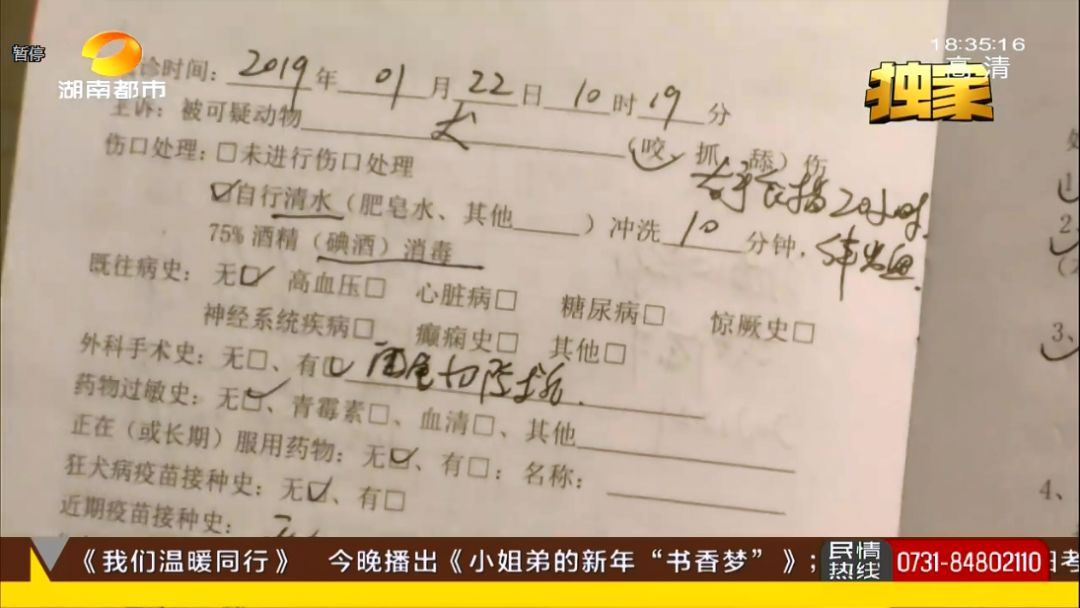 暂停
湖南都市
18:35:16
高清
独家
诊时间：2019年01月22日10时19分
主诉：被可疑动物犬（咬、抓、舔）伤
伤口处理：□未进行伤口处理
右手食指20小时.
☑自行清水（肥皂水、其他____）冲洗10分钟，伴出血.
75%酒精（碘酒）消毒
既往病史：无☑ 高血压□ 心脏病□ 糖尿病□ 惊厥史□
神经系统疾病□ 癫痫史□ 其他□
外科手术史：无□、有☑
药物过敏史：无☑、青霉素□、血清□、其他
正在（或长期）服用药物：无☑、有□：名称：
狂犬病疫苗接种史：无☑、有□
近期疫苗接种史：
1、
2、
3、
4、
《我们温暖同行》 今晚播出《小姐弟的新年“书香梦”》；
民情热线
0731-84802110